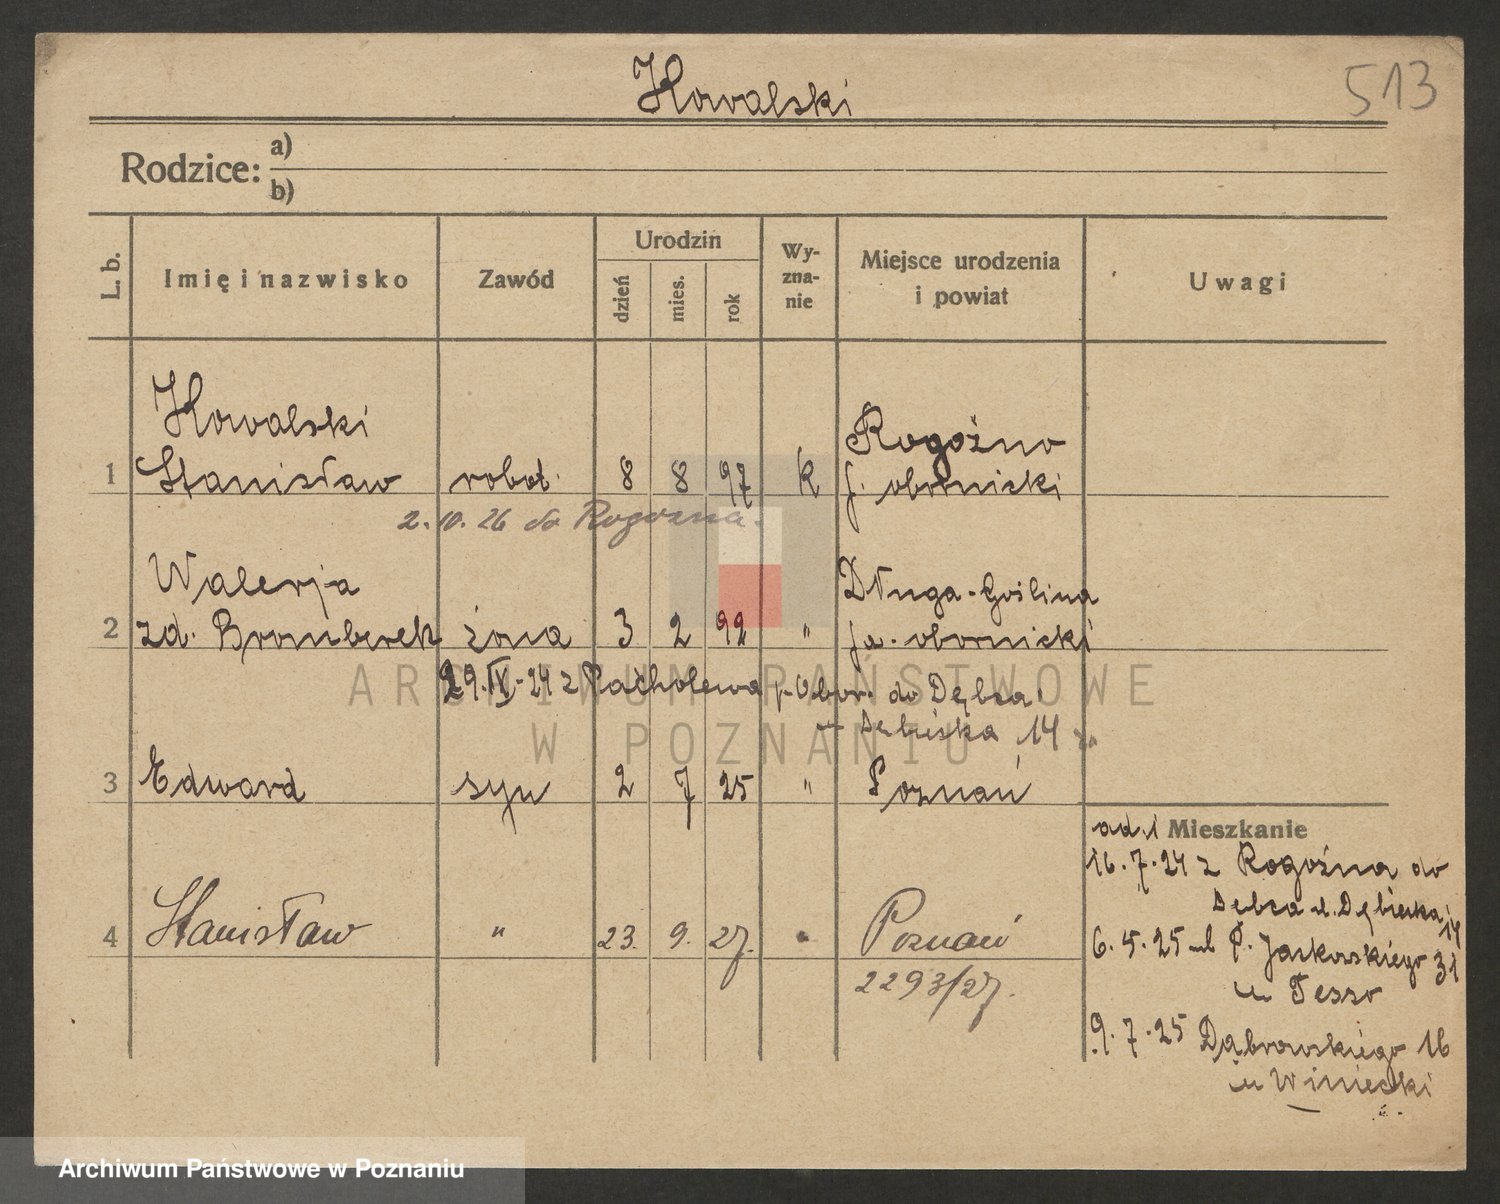 Kowalski
513
Rodzice: a)
b)
L. b. Imię i nazwisko Zawód Urodzin dzień mies. rok Wy-zna-nie Miejsce urodzenia i powiat Uwagi
Kowalski Rogoźno
1 Stanisław robot. 8 8 97 k p. obornicki
2.10.26 do Rogozna.
Walerja Długa-Goślina
2 zd. Bromberek żona 3 2 92 " pow. obornicki
29.IX.24 z Pacholewa p. Obor. do Dębca
Dębiecka 14
3 Edward syn 2 7 25 " Poznań
ad. 1 Mieszkanie
16.7.24 z Rogoźna do
Dębca ul. Dębiecka 14
4 Stanisław " 23. 9. 27. " Poznań
6.5.25 ul. P. Jackowskiego 31
2293/27.
u Tesso
9.7.25 Dąbrowskiego 16
u Winiecki
ARCHIWUM PAŃSTWOWE
W POZNANIU
Archiwum Państwowe w Poznaniu